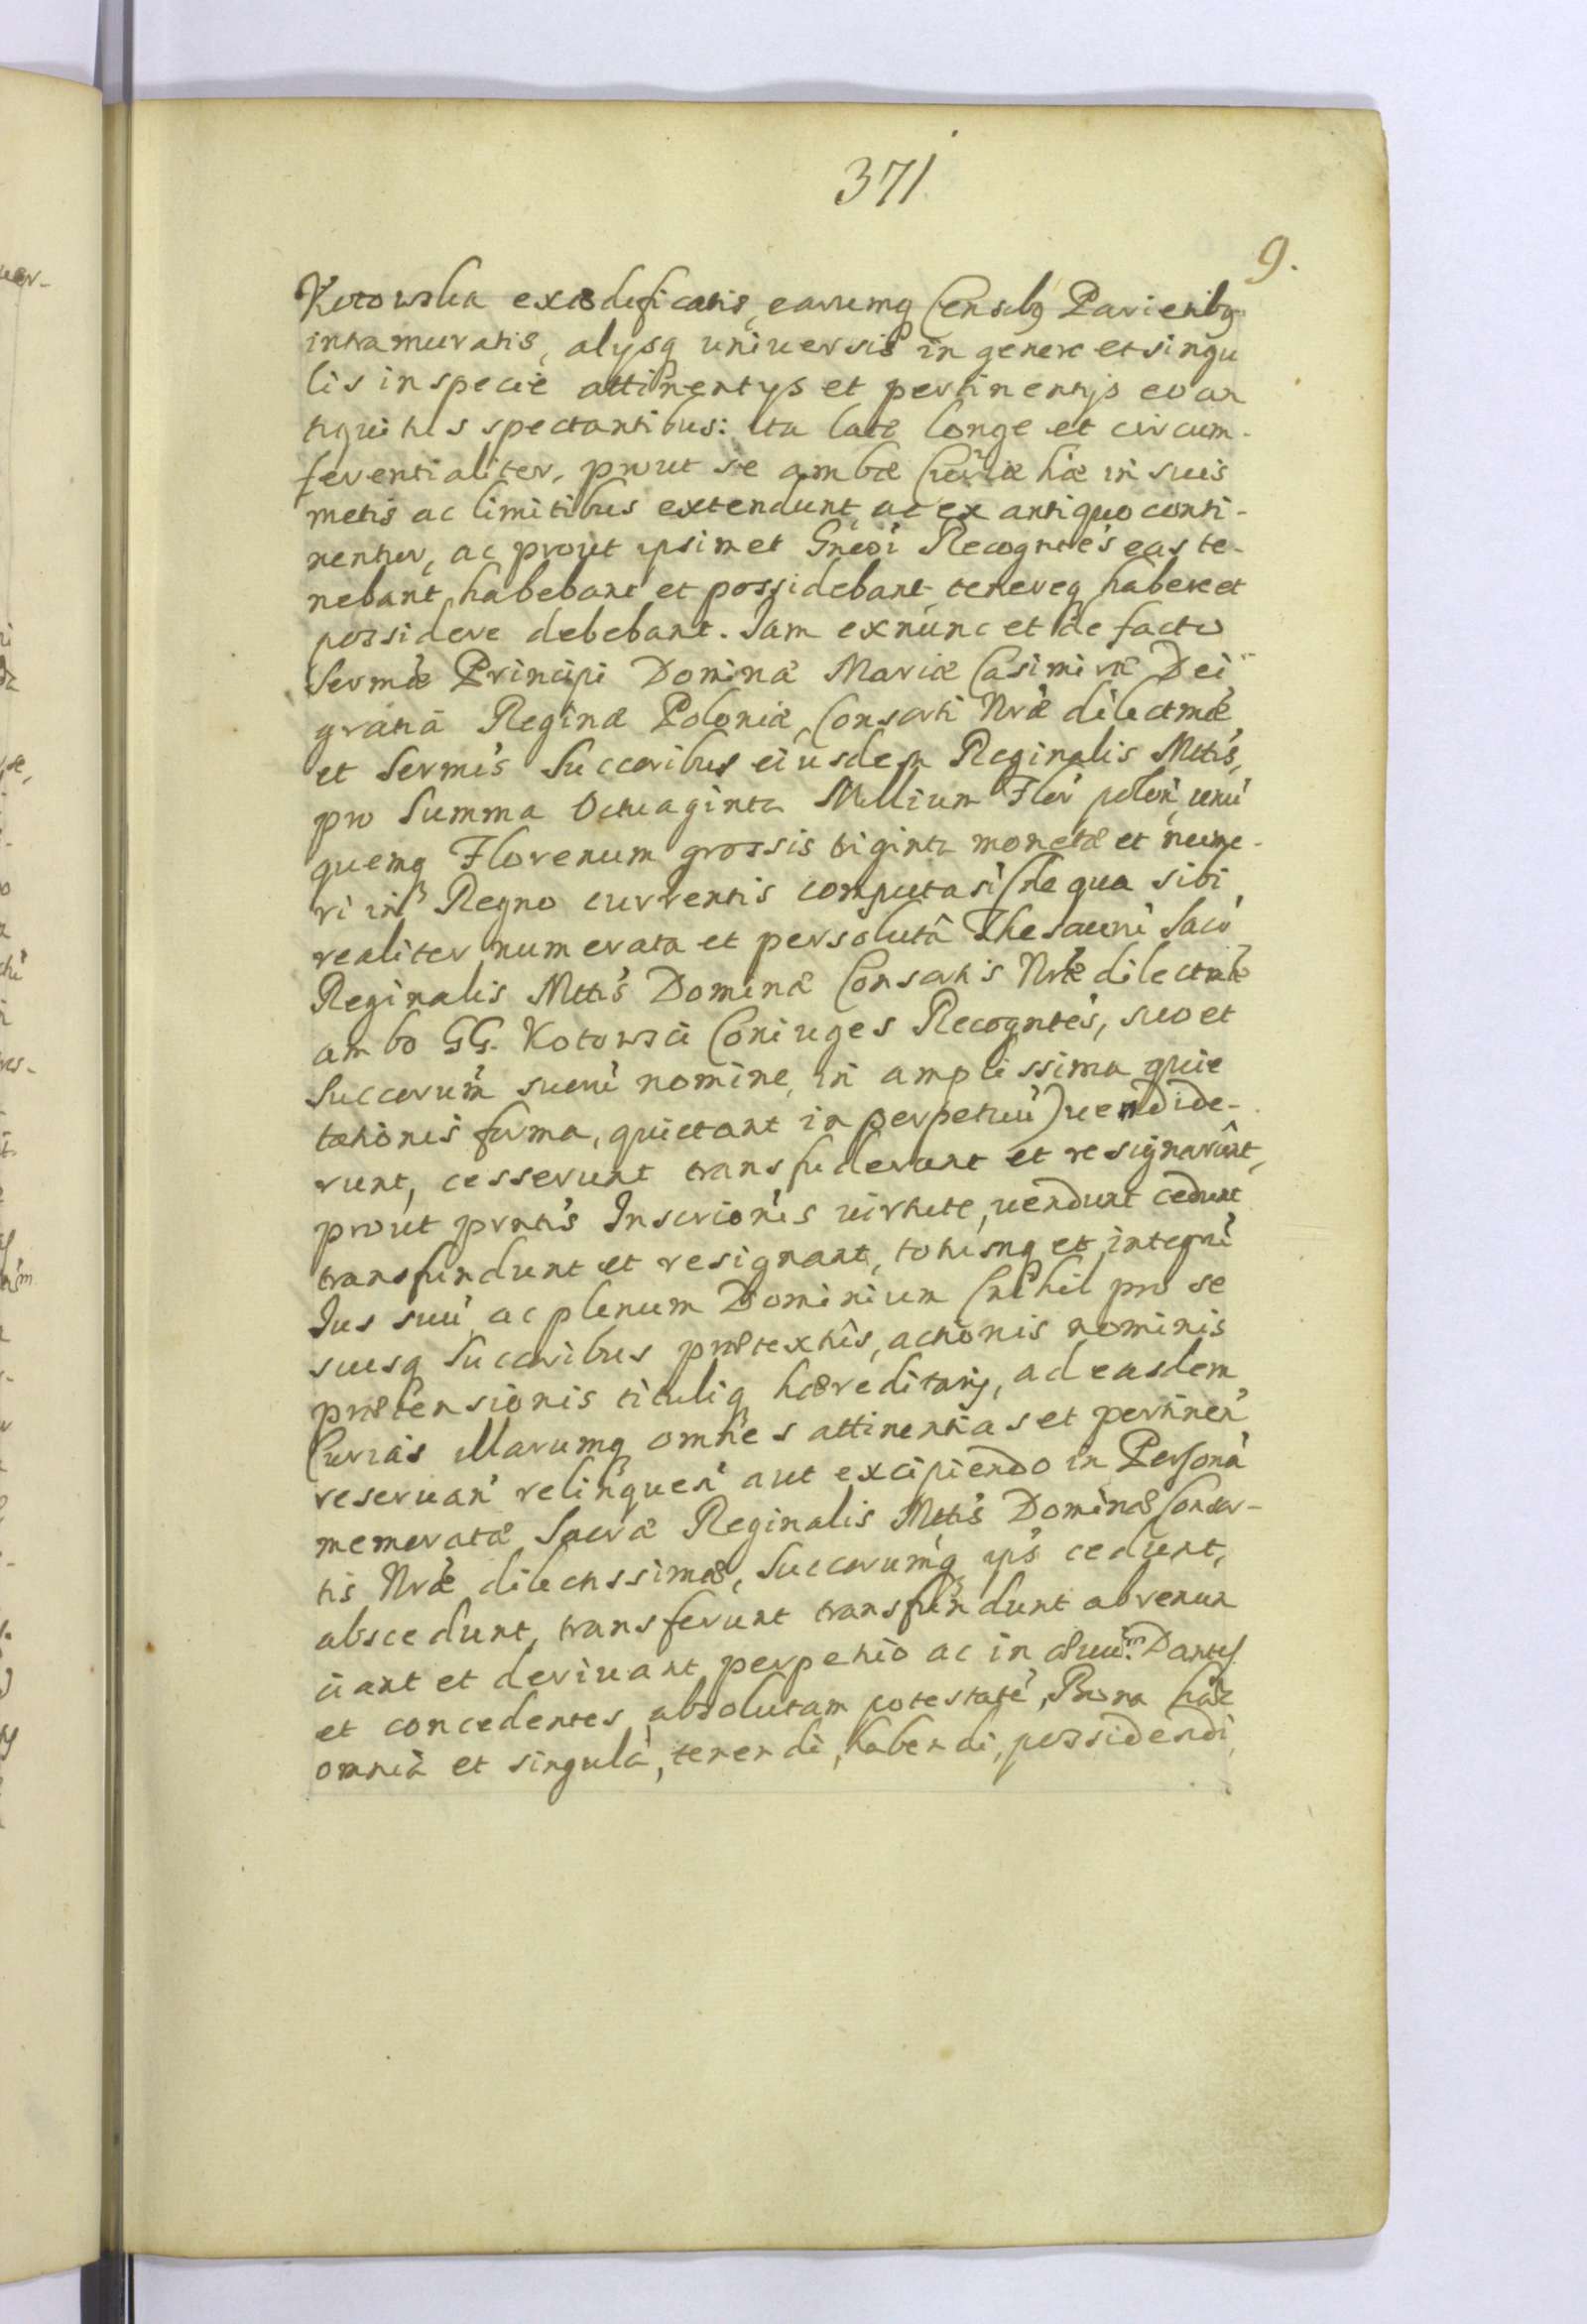 371
9.
Kotowska exædificatis, earumq Censibq Parietibq
intramuratis, alysq uniuersis in genere et singu
lis in specie attinentys et pertinentys eo an
tiquitus spectantibus: ita late longe et circum-
ferentialiter, prout se ambæ Curiæ hæ in suis
metis ac limitibus extendunt, ac ex antiquo conti-
nentur, ac prout ipsimet Gnêdi Recogntes eas te-
nebant habebant et possidebant, tenereq habere et
possidere debebant. Iam exnunc et de facto
Sermæ Principi Dominæ Mariæ Casimiræ Dei
gratiâ Reginæ Poloniæ, Consorti Nræ dilectmæ
et Sermis Succoribus eiusdem Reginalis Mttis,
pro Summa Octuaginta Millium Flor polon, unu
quemq Florenum grossis triginta monetæ et nume-
ri in Regno currentis computasi (de qua sibi
realiter numerata et persolutâ Thesauri Sacr
Reginalis Mttis Dominæ Consortis Nræ dilectmæ
ambo GG. Kotowscii Coniuges Recogntes, suo et
Succorum suoru nomine, in amplissima quie
tationis forma, quietant in perpetuu) uendide-
runt, cesserunt transfuderunt et resignarunt,
prout prntis Inscrionis uirtute, uendunt cedunt
transfundunt et resignant, totumq et integru
Ius suu ac plenum Dominium (nihil pro se
suisq Succoribus prætextus, actionis nominis
prætensionis tituliq hæreditarij, ad easdem
Curias illarumq omnes attinentias et pertinen
reseruan relinquen aut excipiendo in Personâ
memoratæ Sacræ Reginalis Mttis Dominæ Consor-
tis Nræ dilectissimæ, Succorumq ips cedunt,
abscedunt, transferunt transfundunt abrenun
ciant et deriuant perpetuo ac in æuum. Dantes
et concedentes absolutam potestate, Bona hæc
omnia et singula, tenendi, habendi, possidendi,